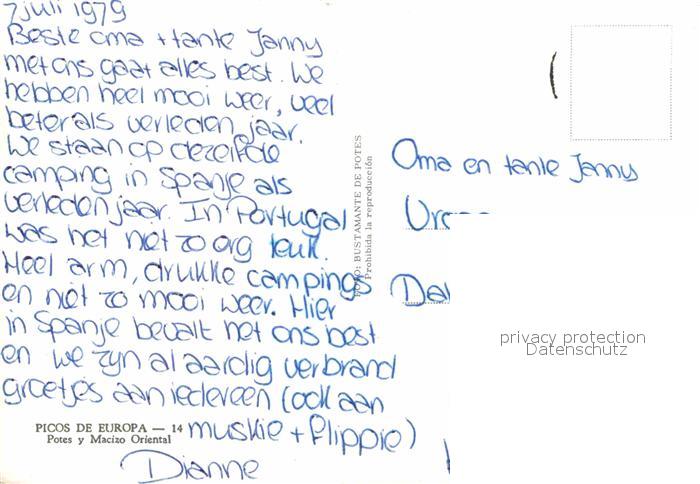 7 juli 1979
Beste oma + tante Janny
met ons gaat alles best. We
hebben heel mooi weer, veel
beter als verleden jaar.
We staan op dezelfde
camping in Spanje als
verleden jaar. In Portugal
was het niet zo erg leuk.
Heel arm, drukke campings
en niet zo mooi weer. Hier
in Spanje bevalt het ons best
en we zyn al aardig verbrand
groetjes aan iedereen (ook aan
muskie + flippie)
Dianne
PICOS DE EUROPA — 14
Potes y Macizo Oriental
FOTO: BUSTAMANTE DE POTES
Prohibida la reproducción
Oma en tante Janny
privacy protection
Datenschutz